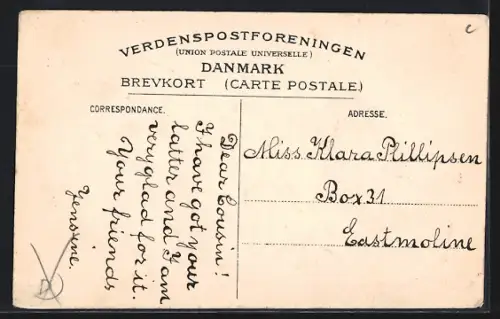 VERDENSPOSTFORENINGEN
(UNION POSTALE UNIVERSELLE)
DANMARK
BREVKORT (CARTE POSTALE.)
CORRESPONDANCE.
ADRESSE.
Dear Cousin!
I have got your
latter and I am
very glad for it.
Your friends
Jensine.
Miss Klara Phillipsen
Box 31
Eastmoline